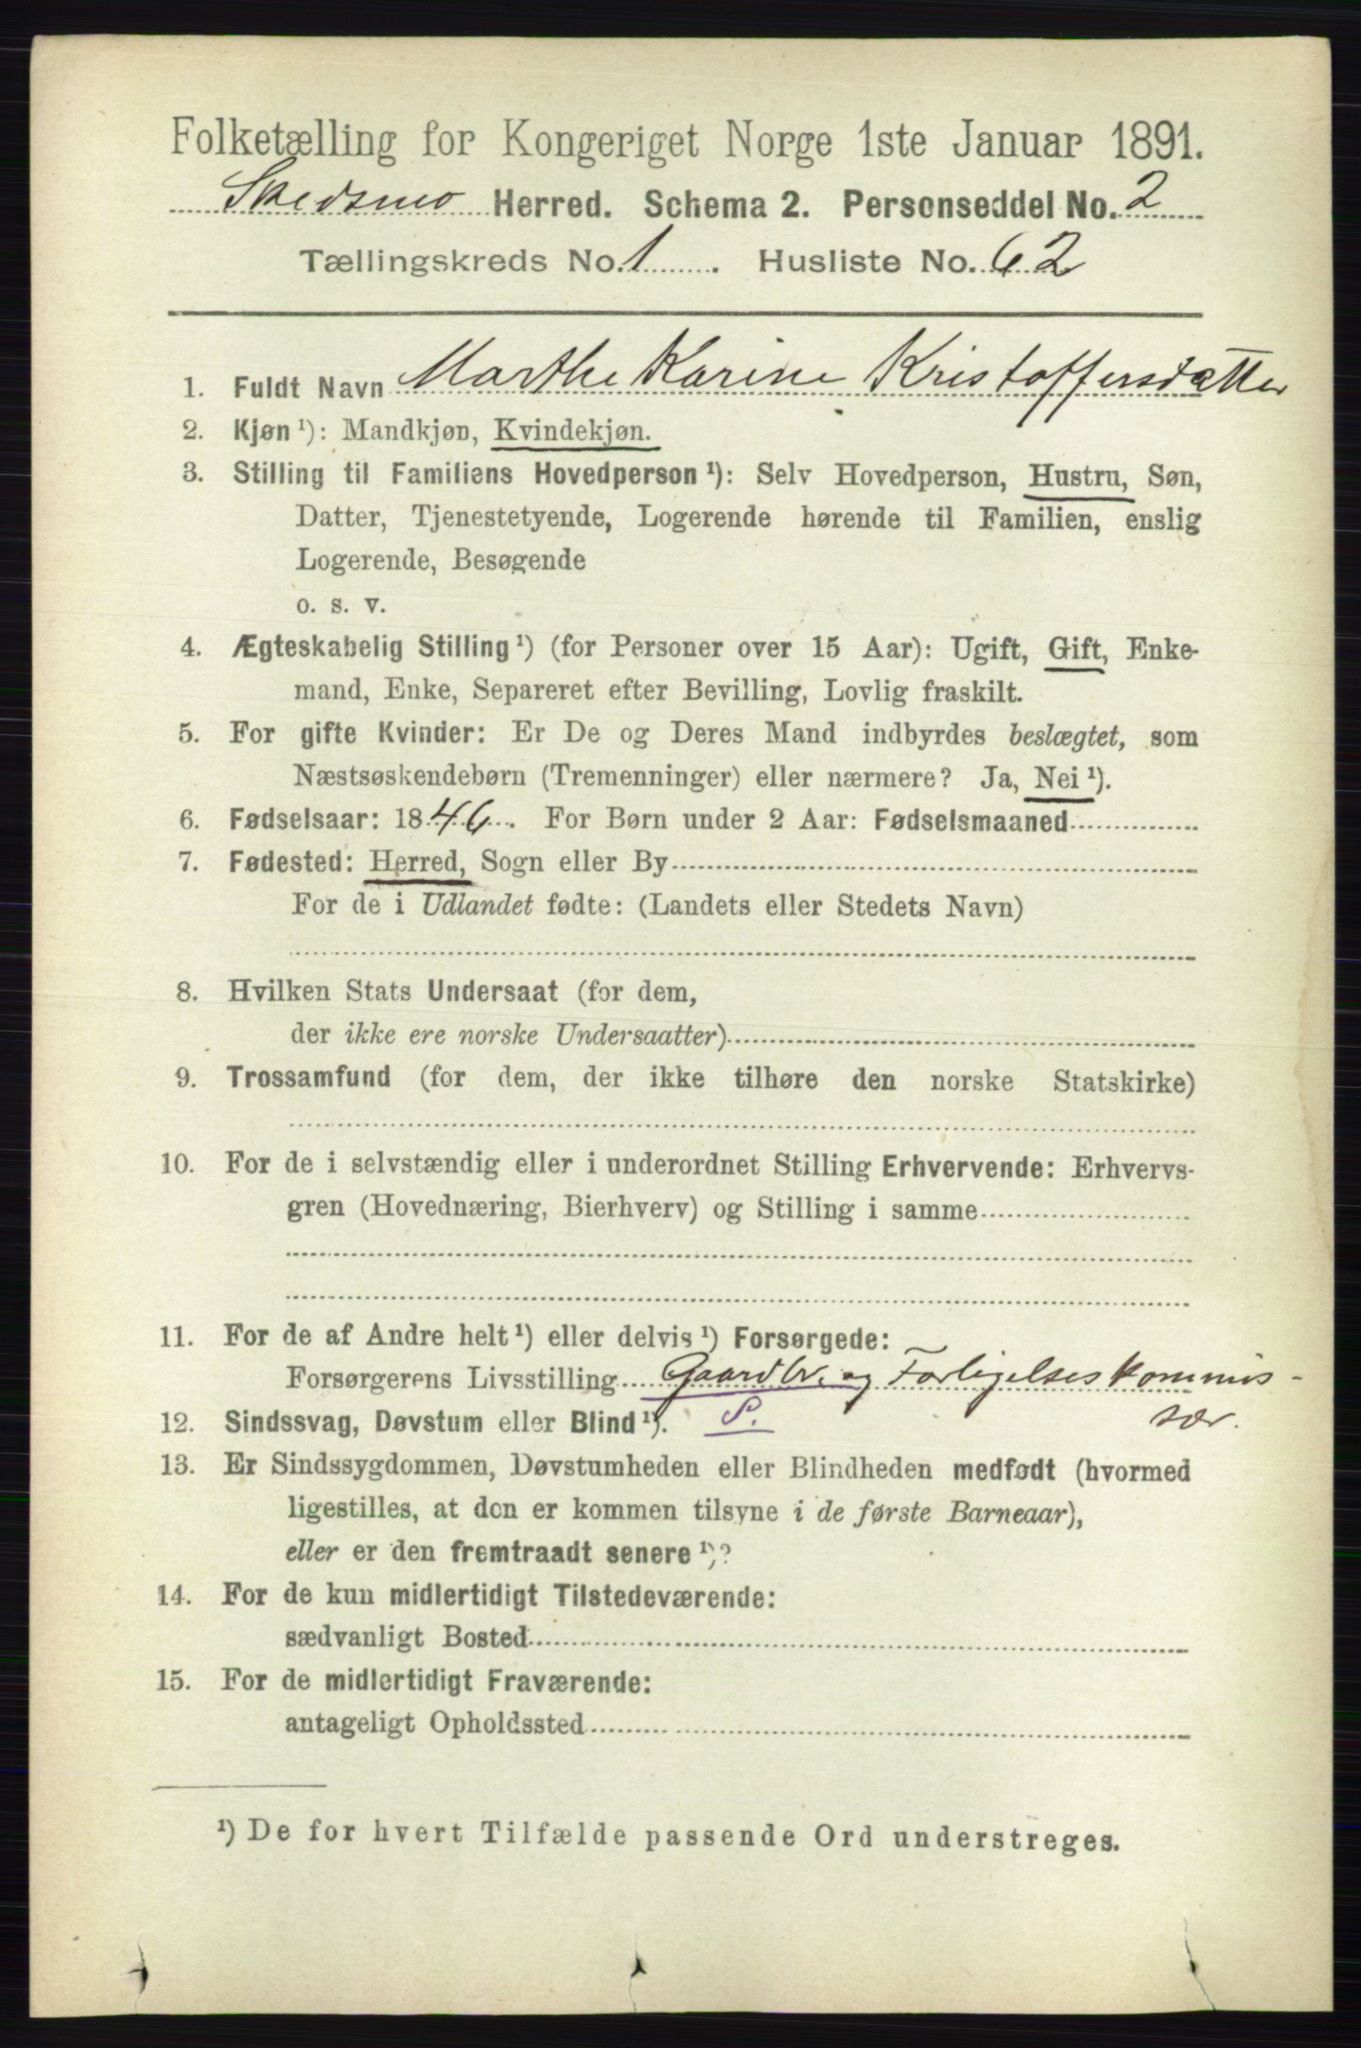 Folketælling for Kongeriget Norge 1ste Januar 1891.
Skedsmo Herred. Schema 2. Personseddel No. 2
Tællingskreds No. 1. Husliste No. 62
1. Fuldt Navn Marthe Karine Kristoffersdatter
2. Kjøn ¹): Mandkjøn, Kvindekjøn.
3. Stilling til Familiens Hovedperson ¹): Selv Hovedperson, Hustru, Søn,
Datter, Tjenestetyende, Logerende hørende til Familien, enslig
Logerende, Besøgende
o. s. v.
4. Ægteskabelig Stilling ¹) (for Personer over 15 Aar): Ugift, Gift, Enke-
mand, Enke, Separeret efter Bevilling, Lovlig fraskilt.
5. For gifte Kvinder: Er De og Deres Mand indbyrdes beslægtet, som
Næstsøskendebørn (Tremenninger) eller nærmere? Ja, Nei ¹).
6. Fødselsaar: 1846. For Børn under 2 Aar: Fødselsmaaned
7. Fødested: Herred, Sogn eller By
For de i Udlandet fødte: (Landets eller Stedets Navn)
8. Hvilken Stats Undersaat (for dem,
der ikke ere norske Undersaatter)
9. Trossamfund (for dem, der ikke tilhøre den norske Statskirke)
10. For de i selvstændig eller i underordnet Stilling Erhvervende: Erhvervs-
gren (Hovednæring, Bierhverv) og Stilling i samme
11. For de af Andre helt ¹) eller delvis ¹) Forsørgede:
Forsørgerens Livsstilling Gaardbr. og Forligelseskommis-
sær.
12. Sindssvag, Døvstum eller Blind ¹). S.
13. Er Sindssygdommen, Døvstumheden eller Blindheden medfødt (hvormed
ligestilles, at den er kommen tilsyne i de første Barneaar),
eller er den fremtraadt senere ¹)?
14. For de kun midlertidigt Tilstedeværende:
sædvanligt Bosted
15. For de midlertidigt Fraværende:
antageligt Opholdssted
¹) De for hvert Tilfælde passende Ord understreges.